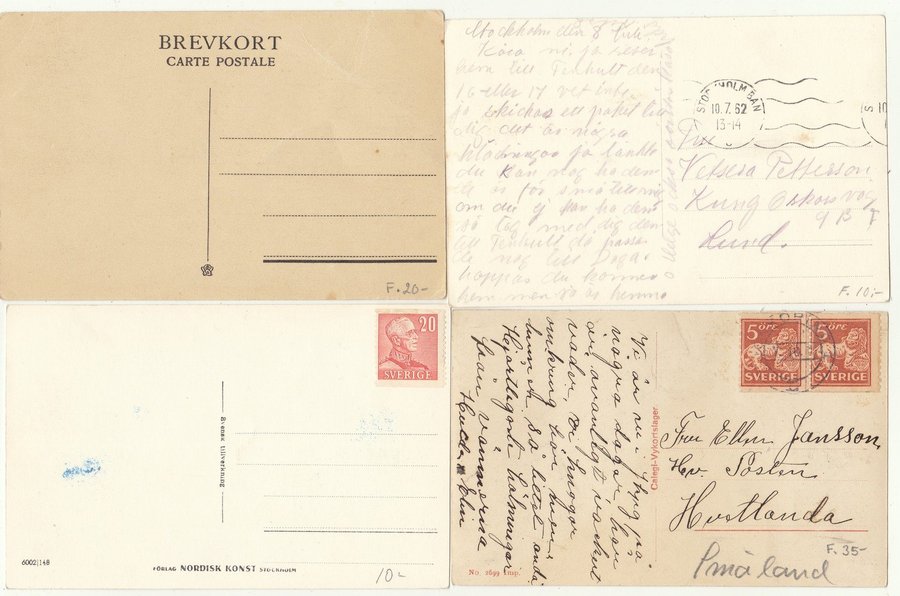 BREVKORT
CARTE POSTALE
F. 20-
Stockholm den 8 Juli
Kära ni ja reser
hem till Tenhult den
16 eller 17 vet inte
ja skickar ett paket till
dig det är några
klänningar ja tänkte
du kan nog ha dem
de är för små till mig
om du ej kan ha dem
så tag med dig dem
till Tenhult då passar
de nog till
hoppas du kommer
hem men så är
STOCKHOLM BAN
10.7.62
13-14
S
10
Fru
Petterson
Kung Oskars väg
9 B
Lund.
F. 10:-
20
SVERIGE
Svensk tillverkning
6002|148
FÖRLAG NORDISK KONST STOCKHOLM
10-
Vi är nu här på
några dagar, har
det avantligt vackert
väder, vi
omkring här men
hinner så litet ändå
Hjärtligaste hälsningar
från vännerna
Hulda Elin
Calegi-Vykortslager
No. 2699 Imp.
5 ÖRE
SVERIGE
5 ÖRE
SVERIGE
Fru Ellen Jansson,
Hv. Posten
Hvetlanda
F. 35-
Småland